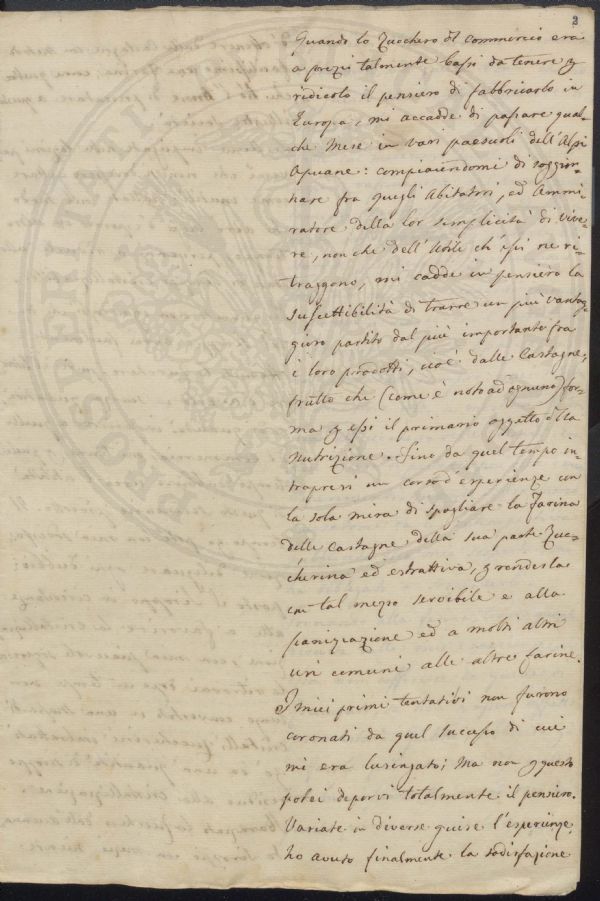 2
Quando lo Zucchero del commercio era
a prezzi talmente bassi da tenere p
ridicolo il pensiero di fabbricarlo in
Europa, mi accadde di passare qual-
che Mese in vari paesuoli dell'Alpi
Apuane: compiacendomi di soggior-
nare fra quegli Abitatori, ed Ammi-
ratore della lor semplicità di vive-
re, non che dell'Utile ch'essi ne ri-
traggono, mi cadde in pensiero la
suscettibilità di trarre un più vantag-
gioso partito dal più importante fra
i loro prodotti, cioè dalle Castagne,
frutto che (come è noto ad ognuno) for-
ma p essi il primario oggetto della
Nutrizione. Fino da quel tempo in-
trapresi un corso d'esperienze con
la sola mira di spogliare la Farina
delle Castagne della sua parte Zuc-
cherina ed estrattiva, p renderla
con tal mezzo servibile e alla
panizzazione ed a molti altri
usi comuni alle altre farine.
I miei primi tentativi non furono
coronati da quel successo di cui
mi era lusingato; Ma non p questo
potei deporvi totalmente il pensiero.
Variate in diverse guise l'esperienze,
ho avuto finalmente la sodisfazione